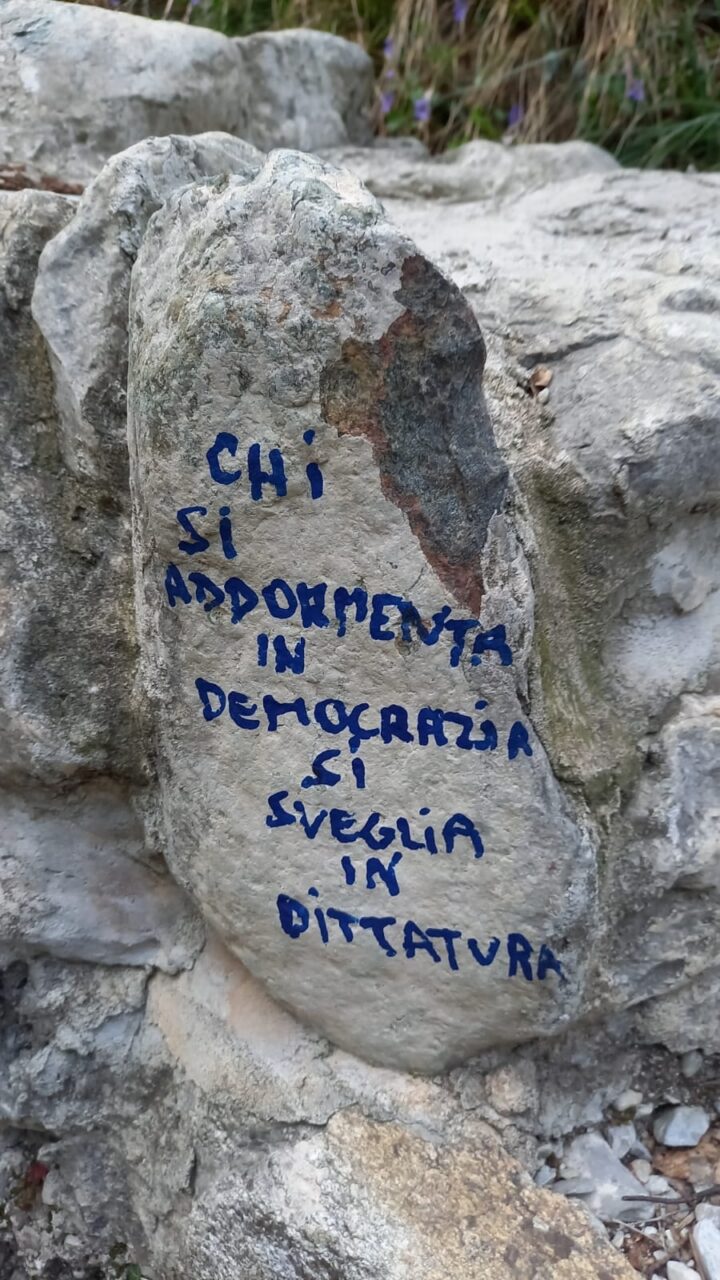 CHi
Si
ADDORMENTA
IN
DEMOCRAZiA
Si
SVEGLiA
IN
DiTTATURA